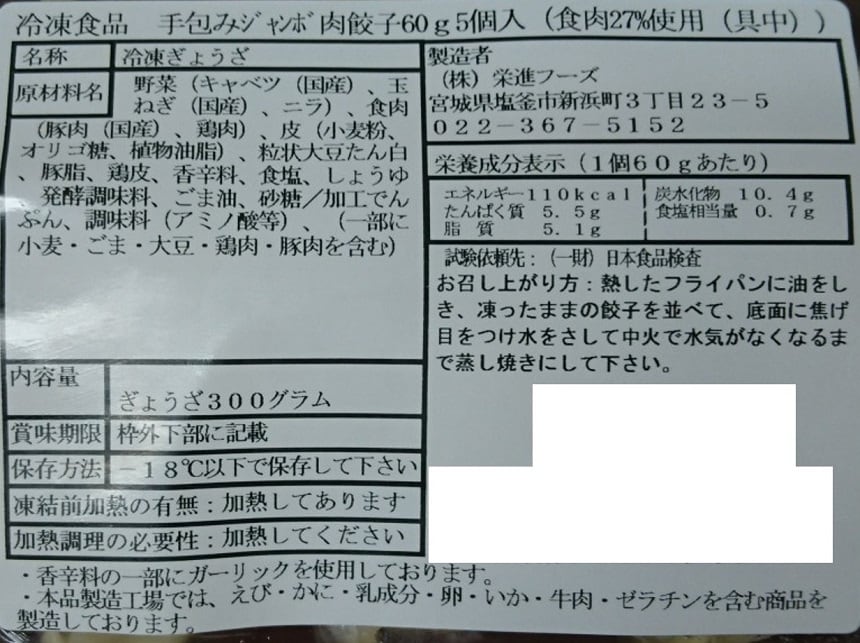 冷凍食品 手包みｼﾞｬﾝﾎﾞ肉餃子60ｇ5個入（食肉27%使用（具中））
名称 冷凍ぎょうざ
原材料名 野菜（キャベツ（国産）、玉
ねぎ（国産）、ニラ）、食肉
（豚肉（国産）、鶏肉）、皮（小麦粉、
オリゴ糖、植物油脂）、粒状大豆たん白
、豚脂、鶏皮、香辛料、食塩、しょうゆ
、発酵調味料、ごま油、砂糖／加工でん
ぷん、調味料（アミノ酸等）、（一部に
小麦・ごま・大豆・鶏肉・豚肉を含む）
内容量
ぎょうざ３００グラム
賞味期限 枠外下部に記載
保存方法 －１８℃以下で保存して下さい
凍結前加熱の有無：加熱してあります
加熱調理の必要性：加熱してください
製造者
（株）栄進フーズ
宮城県塩釜市新浜町３丁目２３－５
０２２－３６７－５１５２
栄養成分表示（１個６０ｇあたり）
エネルギー１１０ｋｃａｌ 炭水化物 １０.４ｇ
たんぱく質 ５.５ｇ 食塩相当量 ０.７ｇ
脂 質 ５.１ｇ
試験依頼先：（一財）日本食品検査
お召し上がり方：熱したフライパンに油をし
き、凍ったままの餃子を並べて、底面に焦げ
目をつけ水をさして中火で水気がなくなるま
で蒸し焼きにして下さい。
・香辛料の一部にガーリックを使用しております。
・本品製造工場では、えび・かに・乳成分・卵・いか・牛肉・ゼラチンを含む商品を
製造しております。